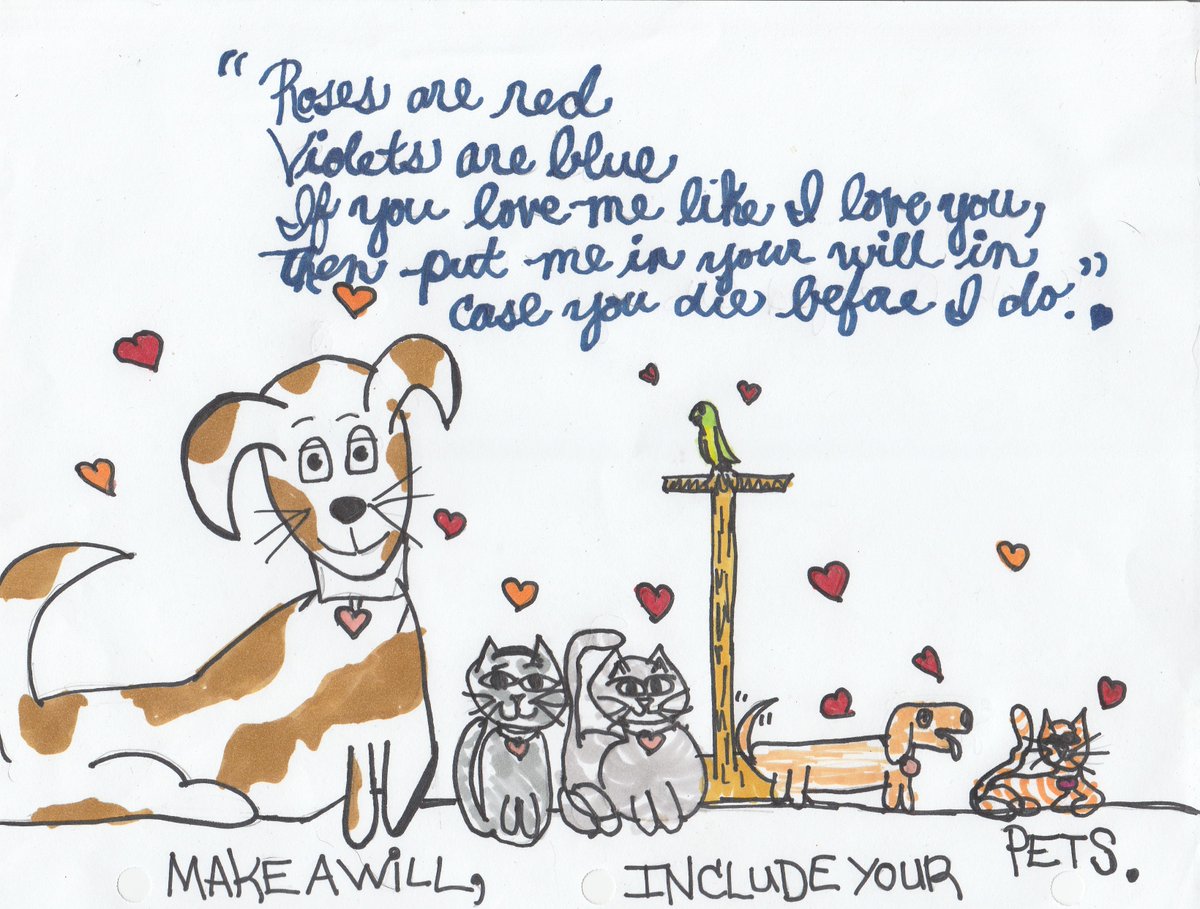 "Roses are red
Violets are blue
If you love me like I love you,
then put me in your will in
case you die before I do."
MAKE A WILL, INCLUDE YOUR PETS.